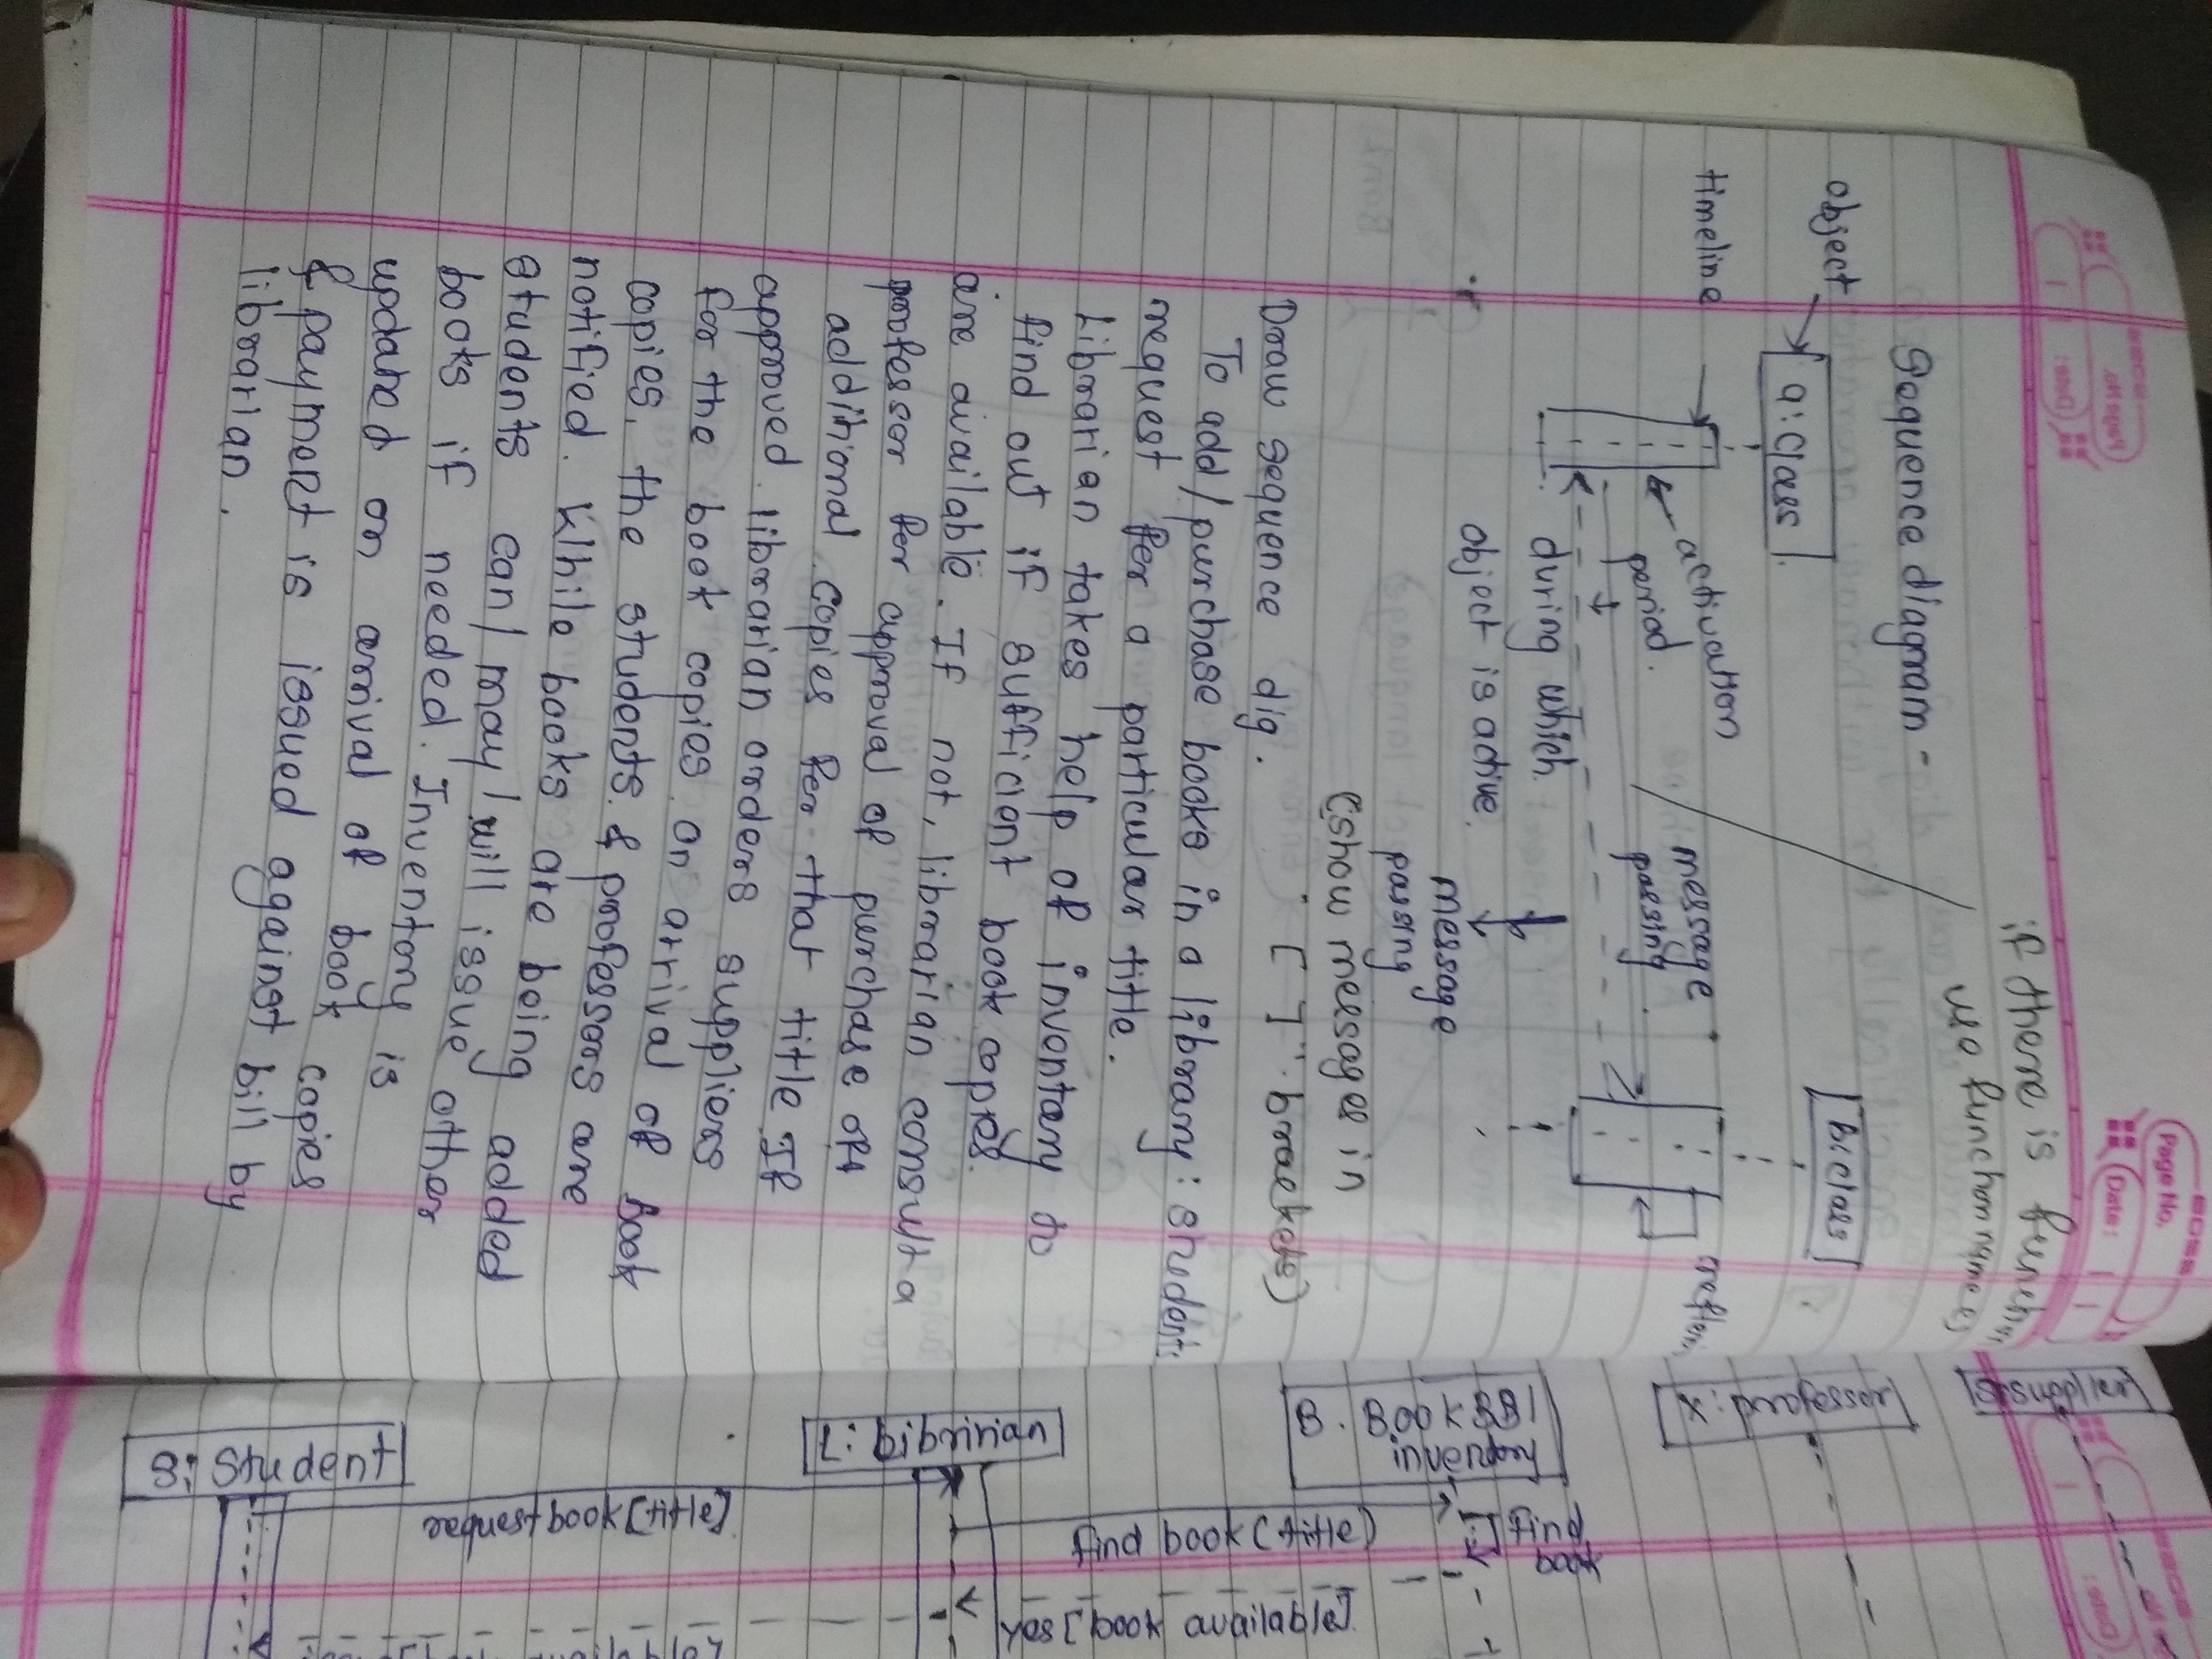 Page No.
Date:
if there is function
use function names
Sequence diagram -
object
a: class
B: class
timeline
activation
period.
message
passing
during which
object is active.
message
passing
(show messages in
"[ ]" brackets)
Draw sequence dig.
To add/purchase books in a library: students
request for a particular title.
Librarian takes help of inventory to
find out if sufficient book copies.
are available. If not, librarian consult a
professor for approval of purchase of
additional copies for that title If
approved librarian orders suppliers
for the book copies. On arrival of Book
copies, the students & professors are
notified. While books are being added
students can/ may/ will issue other
books if needed. Inventory is
updated on arrival of book copies
& payment is issued against bill by
librarian.
X: professor
B: Books
inventory
find
book
L: Librinian
find book (title)
yes [book available]
S: Student
request book [title]